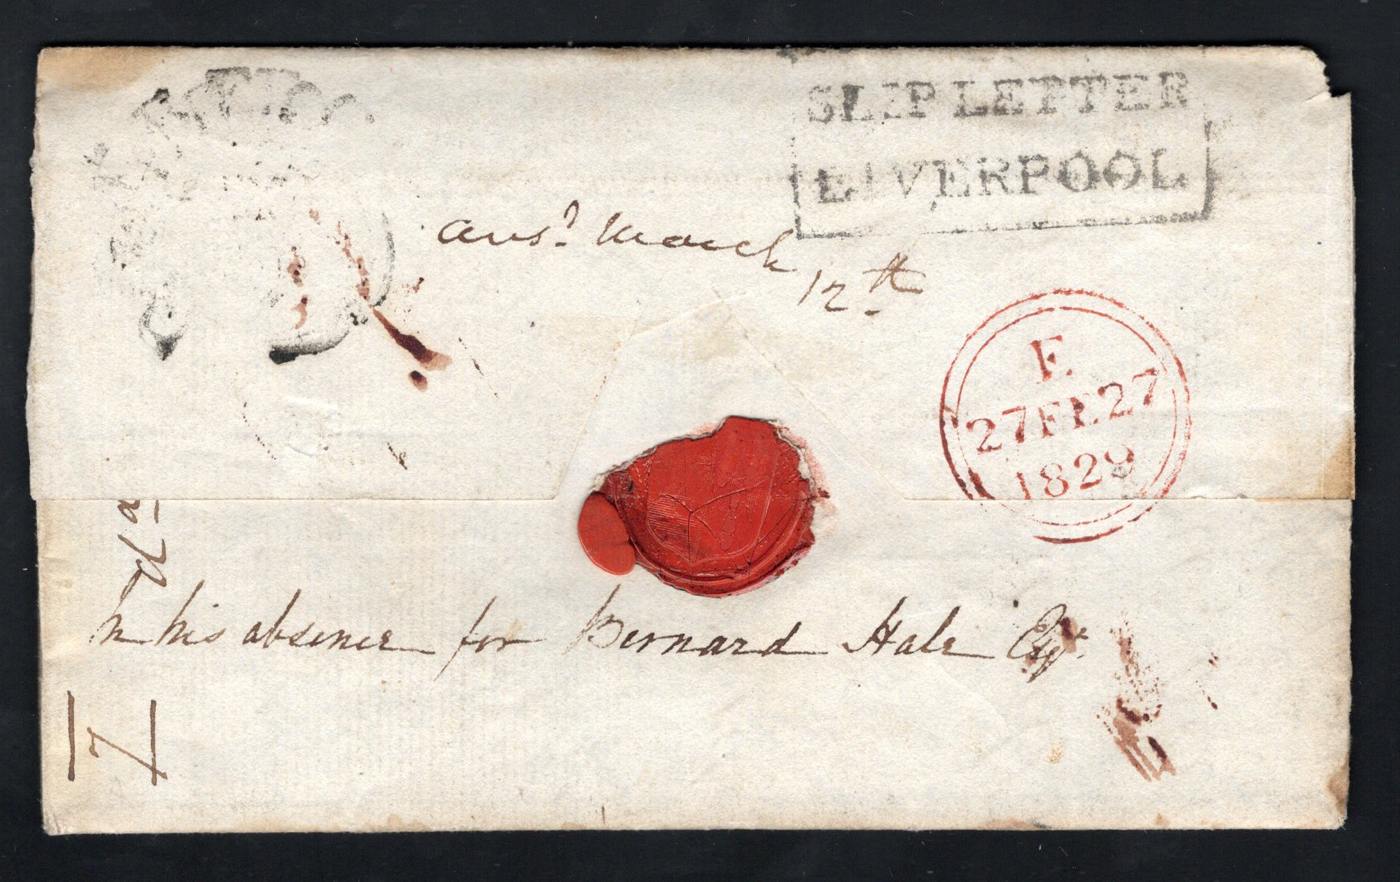 SHIP LETTER
LIVERPOOL
ansd. March
12th
E
27FE27
1829
In his absence for Bernard Hale Esqr.